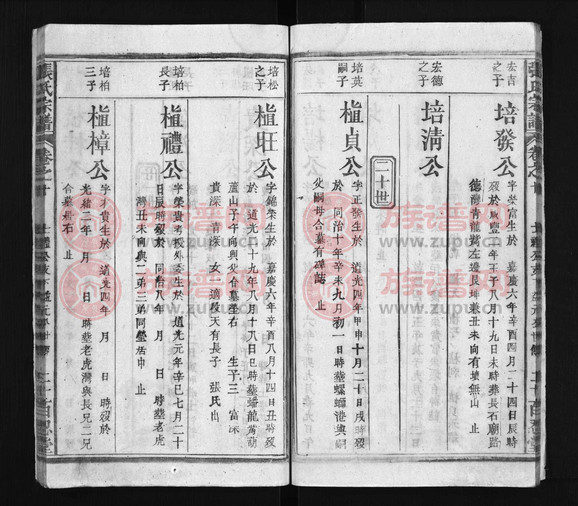 張氏宗譜
卷之十
宏吉
之子
培發公
字榮富生於 嘉慶六年辛酉四月二十四日辰時
歿於咸豐二年壬子八月十九日未時葬長石廟路
德灣青龍嘴左邊艮坤兼丑未向有墳無山 止
宏德
之子
培清公
二十世
培英
嗣子
植貞公
字正發生於 道光四年甲申十月二十日戌時歿
於 同治十年辛未九月初一日時葬螺螄港與嗣
父嗣母合墓有碑誌 止
培松
之子
植旺公
字錦榮生於 嘉慶六年辛酉八月十四日丑時歿
於 道光十九年八月十八日巳時葬蟠龍嘴葫
蘆山子午向與父合墓塋右 生子三 富深
貴深 青深 女 適段天有長子 張氏出
培柏
長子
植禮公
字榮貴 生於 道光元年辛巳七月二十
日辰時歿於 同治八年 月 日 時葬老虎
灣丑未向與二弟三弟同塋活巾 止
培柏
三子
植樟公
字木貴生於 道光四年 月 日 時歿於
光緒二年 月 日 時葬老虎灣與長兄二兄
合墓 右 止
張氏宗譜
卷之十
族谱网
www.zupu.cn